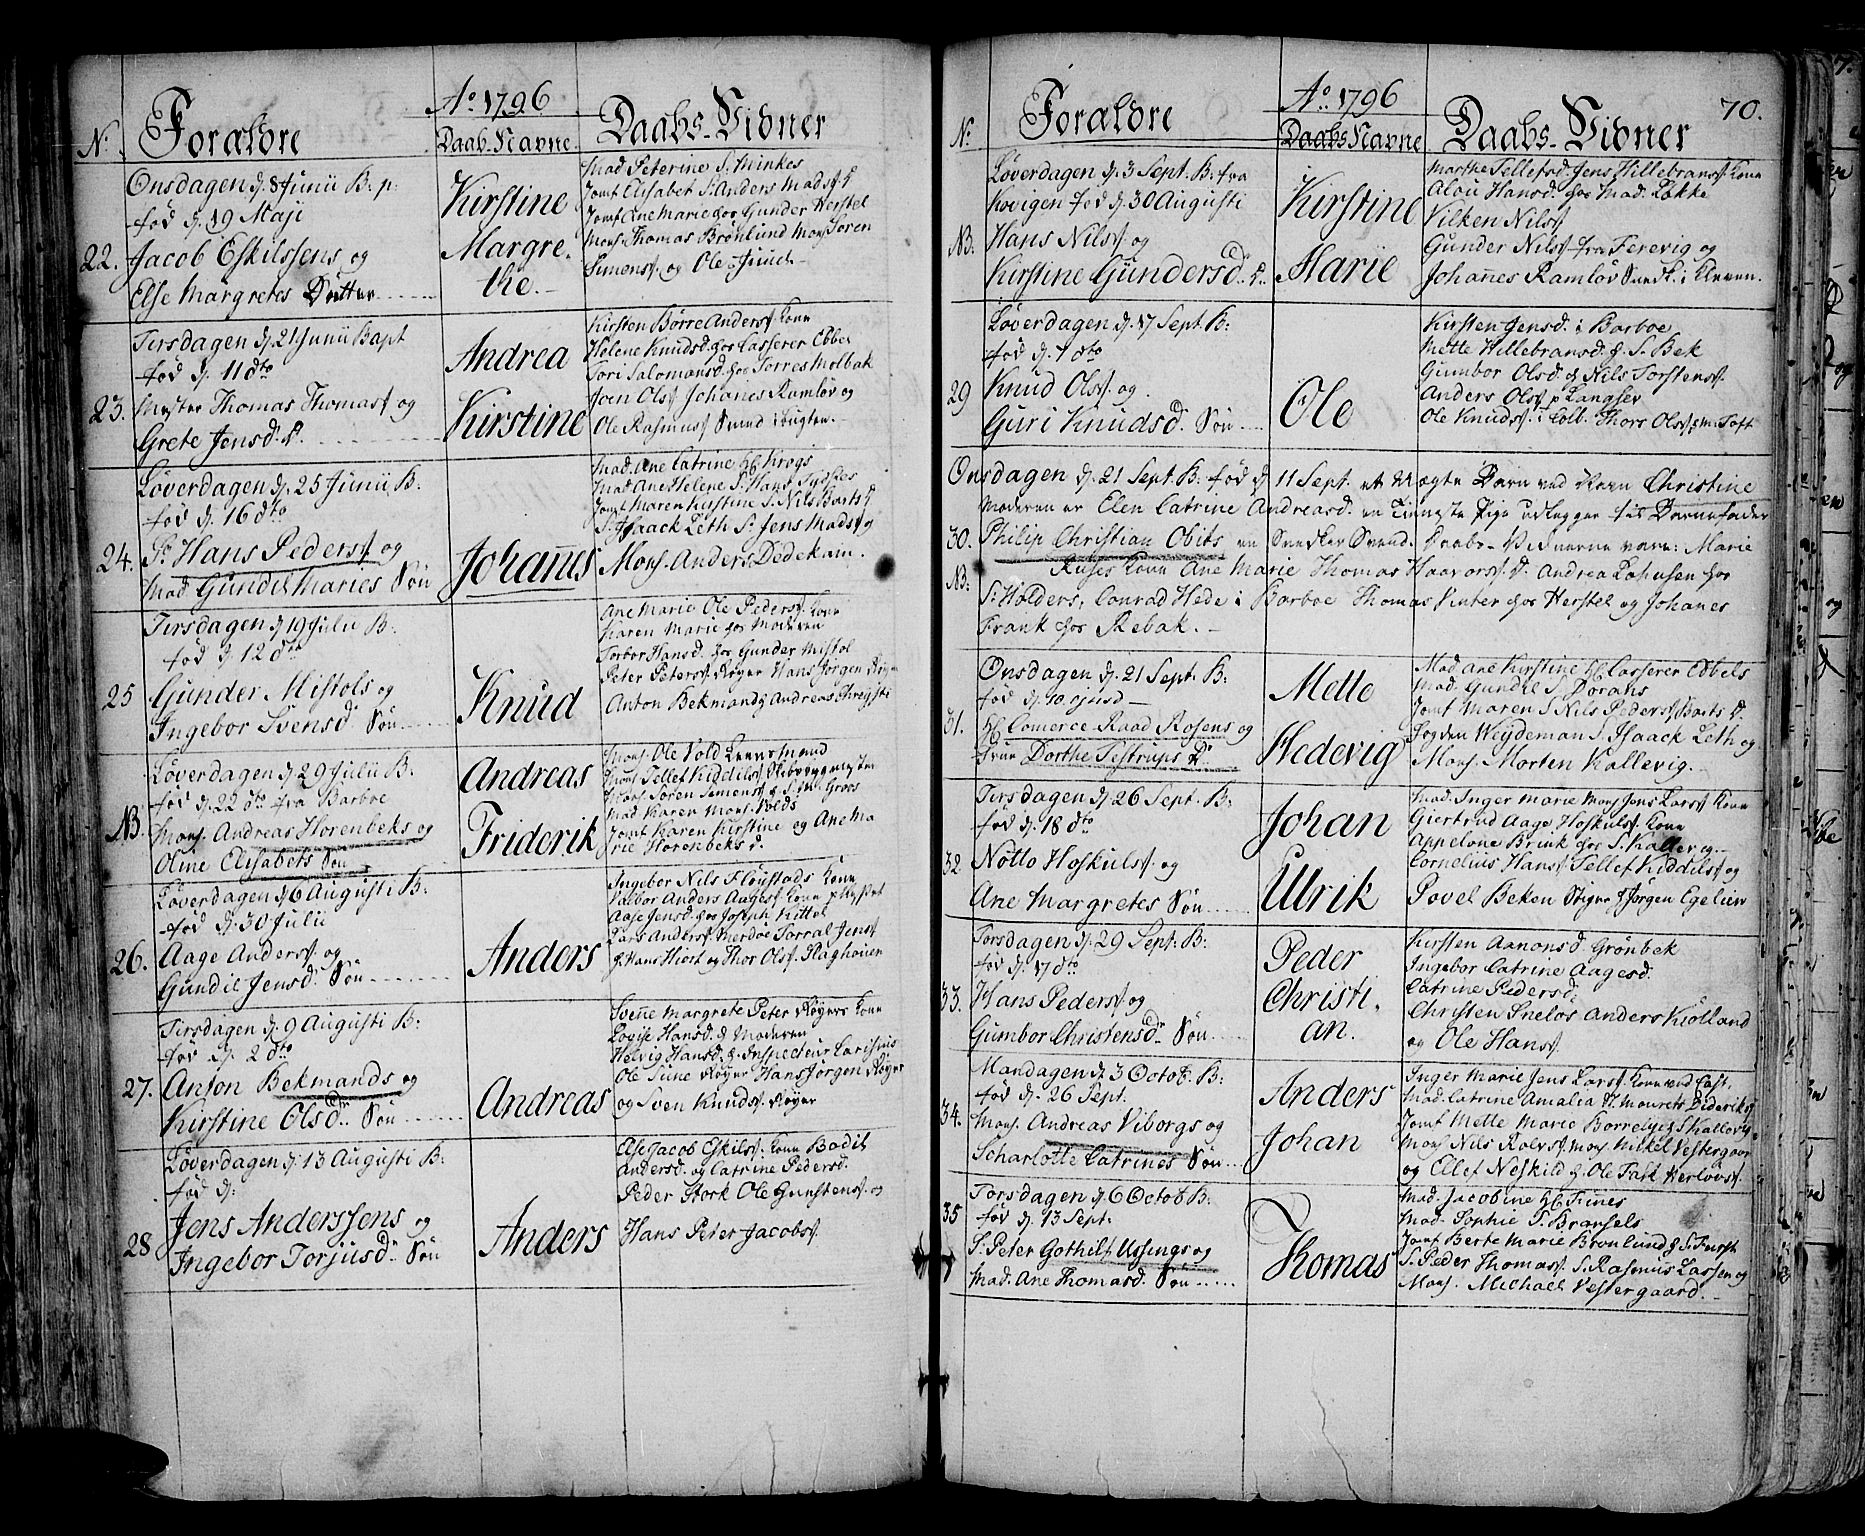 Aº 1796
N. Forældre Daab-Navne Daabs-Vidner
Onsdagen d. 8 Junii B: p:
fød d. 19 Maji
22. Jacob Eskilssens og
Else Margretes Dotter
Kirstine
Margre-
the.
Mad Peterine S. Minkes
Jomf Elisabet S. Anders Mads: D
Jomf Ane Marie hos Gunder Herstel
Mons: Thomas Brønlund Mons Søren
Simens: og Ole Juul
Tirsdagen d. 21 Junii Bapt
fød d. 11 dto
23. Mester Thomas Thomas: og
Grete Jensd: D.
Andrea
Kirstine
Kirsten Børre Anders: kone
Helene Knudsd. hos Casserer Ebbel
Tori Salomonsd. hos Torres Molbak
Joen Ols: Johanes Ramløv og
Ole Rasmus: Svend i
Løverdagen d. 25 Junii B:
fød d. 16 dto
24. Sr. Hans Peders: og
Mad Gundil Maries Søn
Johannis
Mad. Ane Catrine Krogs
Mad Ane Helene S. Hans Tydskes
Jomf Maren Kirstine S. Nils Barts D
S. Isaack Leth Sr Jens Mads: og
Mons. Anders Dedekam.
Tirsdagen d 19 Julii B:
fød d. 12 dto
25 Gunder Mistols og
Ingebor Svensd Søn
Knud
Ane Marie Ole Peders: kone
Karen Marie hos Moderen
Torbor Hansd. hos Gunder Mistol
Peter Peters: Røyer Hans Jørgen Røyer
Anton Bekmand & Andreas
Løverdagen d 29 Julii B:
fød d. 22 dto fra Barboe
NB. Mons. Andreas Horenbeks og
Oline Elisabets Søn
Andreas
Friderik
Mons: Ole Vold Leensmand
Mons Tellef Kiddils: Skibbygmester
Mons Søren Simens: & S. W. Groos
Mad Karen Mons. Volds
Jomf Karen Kirstine og Ane Ma
rie Horenbeks D.
Løverdagen d 6 Augusti B:
fød d. 30 Julii
26. Aage Anders: og
Gundil Jensd: Søn
Anders
Ingebor Nils Fløistads kone
Valbor Anders Aages: kone
Aase Jensd hos Joseph Kittel
Lars Anders: Merdøe Torral Jens:
& Hans Hiort og Thor Ols: Flaghouen
Tirsdagen d. 9 Augusti B:
fød d. 2 dto
27. Anton Bekmands og
Kirstine Olsd: Søn
Andreas
Svenne Margrete Peter Røyers kone
Lovise Hansd. & Moderen
Helvig Hansd. & Inspecteur
Ole Sune Røyer Hans Jørgen Røyer
og Sven Knuds: Røyer
Løverdagen d. 13 Augusti B:
fød d:
28 Jens Anderssens og
Ingebor Torjusd: Søn
Anders
Else Jacob Eskils: kone Bodil
Andersd: og Catrine Pedersd.
Peder Stork Ole Gunstens: og
Hans Peter Jacobs:
Aº 1796 70.
N: Forældre Daabs Navne Daabs-Vidner
Løverdagen d. 3 Sept. B: fra
Kovigen fød d. 30 Augusti
NB. Hans Nils: og
Kirstine Gundersd. D.
Kirstine
Marie
Marthe Tellefsd. Jens Hillebrans: kone
Alou Hansd. hos Mad. Løkke
Vilken Nils:
Gunder Nils: fra Ferevig og
Johanes Ramløv Svend i Kleven.
Løverdagen d. 17 Sept. B:
fød d. 7 dto
29 Knud Ols: og
Guri Knudsd. Søn
Ole
Kirsten Jensd. i Barboe
Mette Hillebransd. & S. Bek
Gumbor Olsd & Nils Torstens:
Anders Ols: p Langsev
Ole Knuds: i Colb. Thors Ols: Toft
Onsdagen d. 21 Sept. B: fød d. 11 Sept. et Uægte Barn ved Navn Christine
Moderen er Elen Catrine Andreasd. en Tieneste Pige udlegger til Barnefader
30. Philip Christian Obits en Snedker Svend. Daabs-Vidnerne vare: Marie
NB: Ruses kone Ane Marie Thomas Haavors: D. Andrea hos
S. Holders, Conrad Hede i Barboe Thomas Vinter hos Herstel og Johanes
Frank hos Rebak.
Onsdagen d. 21 Sept. B:
fød d. 10
31. Comerce-Raad Rosens og
Frue Dorthe Testrups D.
Mette
Hedevig
Mad Ane Kirstine Casserer Ebbels
Mad. Gundil S Dorahs
Jomf Maren S Nils Peders: Barts D.
Fogden Weydeman S. Isaack Leth og
Mons. Morten Kallevig.
Tirsdagen d 26 Sept. B:
fød d. 18 dto
32. Notto Hoskuls: og
Ane Margretes Søn
Johan
Ulrik
Mad. Inger Marie Mons Jens Lars: kone
Giertrud Aage Hoskuls: kone
Appelone Brink hos S. Kallevig
Cornelius Hans: Tellef Kiddils: og
Povel Beken & Jørgen Egelien
Torsdagen d. 29 Sept. B:
fød d. 17 dto
33. Hans Peders: og
Gumbor Christensd: Søn
Peder
Christi-
an.
Kirsten Aanonsd Grønbek
Ingebor Catrine Aagesd.
Catrine Pedersd:
Christen Snelos Anders Kiølland
og Ole Hans:
Mandagen d 3 Octob. B:
fød d. 26 Sept.
34. Mons. Andreas Viborgs og
Scharlotte Catrines Søn
Anders
Johan
Inger Marie Jens Lars: kone ved
Mad. Catrine Amalia Mourets Dideriks
Jomf Mette Marie Kallevig
Mons Nils Rolvs: Mons Mikkel Vestergaar
og Ellef Neskild & Ole Falk Herlovs:
Torsdagen d. 6 Octob. B:
fød d. 13 Sept.
35 S. Peter Gothilf Ussings og
Mad. Ane Thomasd. Søn
Thomas
Mad. Jacobine Fines
Mad. Sophie S. Bransels
Jomf Berte Marie Brønlund & S. Furst
S. Peder Thomas: S. Rasmus Lassen og
Mons. Michael Vestergaard.